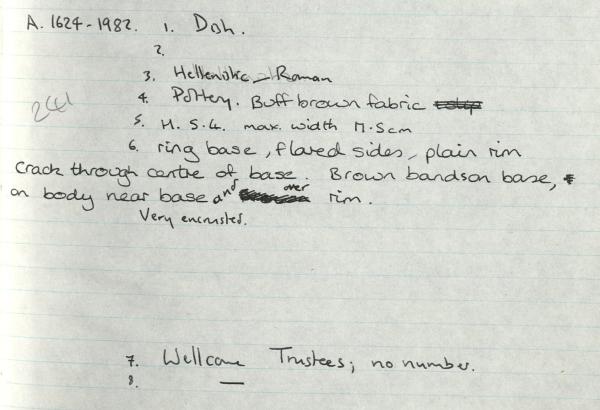 A. 1624-1982. 1. Dish.
2.
3. Hellenistic - Roman
241
4. Pottery. Buff brown fabric
5. H. 5.4. max. width 17.5cm
6. ring base, flared sides, plain rim
Crack through centre of base. Brown bands on base,
on body near base and over rim.
Very encrusted.
7. Wellcome Trustees; no number.
8. —